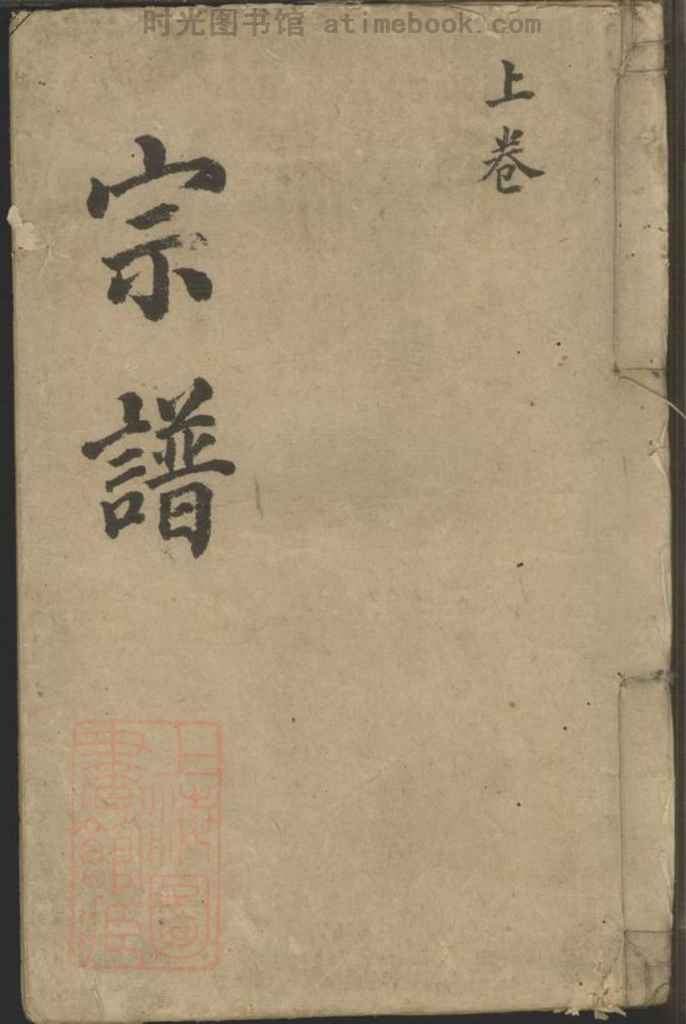 时光图书馆 atimebook.com
上卷
宗譜